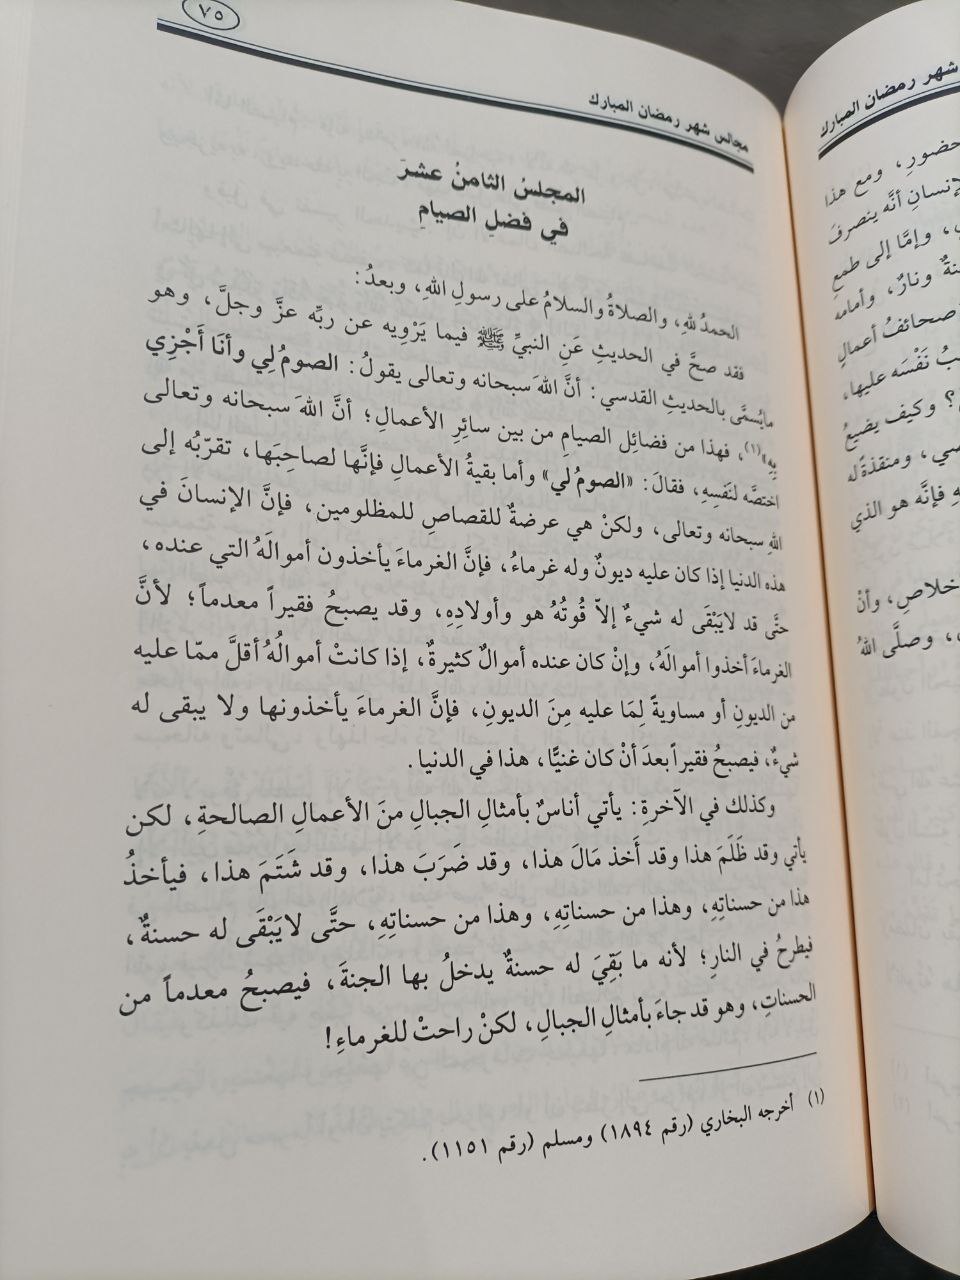 ٧٥
مجالس شهر رمضان المبارك
المجلسُ الثامنُ عشرَ
في فضلِ الصيامِ
الحمدُ للهِ، والصلاةُ والسلامُ على رسولِ اللهِ، وبعدُ:
فقد صحَّ في الحديثِ عَنِ النبيِّ ﷺ فيما يَرْوِيه عن ربِّه عزَّ وجلَّ، وهو
مايُسمَّى بالحديثِ القدسي: أنَّ اللهَ سبحانه وتعالى يقولُ: الصومُ لي وأنَا أَجْزِي
بِهِ»(١)، فهذا من فضائلِ الصيامِ من بين سائرِ الأعمالِ؛ أنَّ اللهَ سبحانه وتعالى
اختصَّه لنَفسِهِ، فقالَ: «الصومُ لي» وأما بقيةُ الأعمالِ فإنَّها لصاحِبَها، تقرّبُه إلى
اللهِ سبحانه وتعالى، ولكنْ هي عرضةٌ للقصاصِ للمظلومين، فإنَّ الإنسانَ في
هذه الدنيا إذا كان عليه ديونٌ وله غرماءُ، فإنَّ الغرماءَ يأخذون أموالَهُ التي عنده،
حتَّى قد لايَبْقَى له شيءٌ إلاّ قُوتُهُ هو وأولادِهِ، وقد يصبحُ فقيراً معدماً؛ لأنَّ
الغرماءَ أخذوا أموالَهُ، وإنْ كان عنده أموالٌ كثيرةٌ، إذا كانتْ أموالُهُ أقلَّ ممّا عليه
من الديونِ أو مساويةً لِمَا عليه مِنَ الديونِ، فإنَّ الغرماءَ يأخذونها ولا يبقى له
شيءٌ، فيصبحُ فقيراً بعدَ أنْ كان غنيًّا، هذا في الدنيا.
وكذلك في الآخرةِ: يأتي أناسٌ بأمثالِ الجبالِ منَ الأعمالِ الصالحةِ، لكن
يأتي وقد ظَلَمَ هذا وقد أَخذ مَالَ هذا، وقد ضَرَبَ هذا، وقد شَتَمَ هذا، فيأخذُ
هذا من حسناتِهِ، وهذا من حسناتِهِ، وهذا من حسناتِهِ، حتَّى لايَبْقَى له حسنةٌ،
فيطرحُ في النارِ؛ لأنه ما بَقِيَ له حسنةٌ يدخلُ بها الجنةَ، فيصبحُ معدماً من
الحسناتِ، وهو قد جاءَ بأمثالِ الجبالِ، لكنْ راحتْ للغرماءِ!
(١) أخرجه البخاري (رقم ١٨٩٤) ومسلم (رقم ١١٥١).
شهر رمضان المبارك
حضورِ، ومع هذا
لإنسانِ أنَّه ينصرفَ
، وإمَّا إلى طمعِ
ونارٌ، وأمامه
صحائفُ أعمالٍ
نَفْسَه عليها،
؟ وكيف يضيعُ
ومنقذةً له
فإنَّه هو الذي
وأنْ
، وصلَّى اللهُ